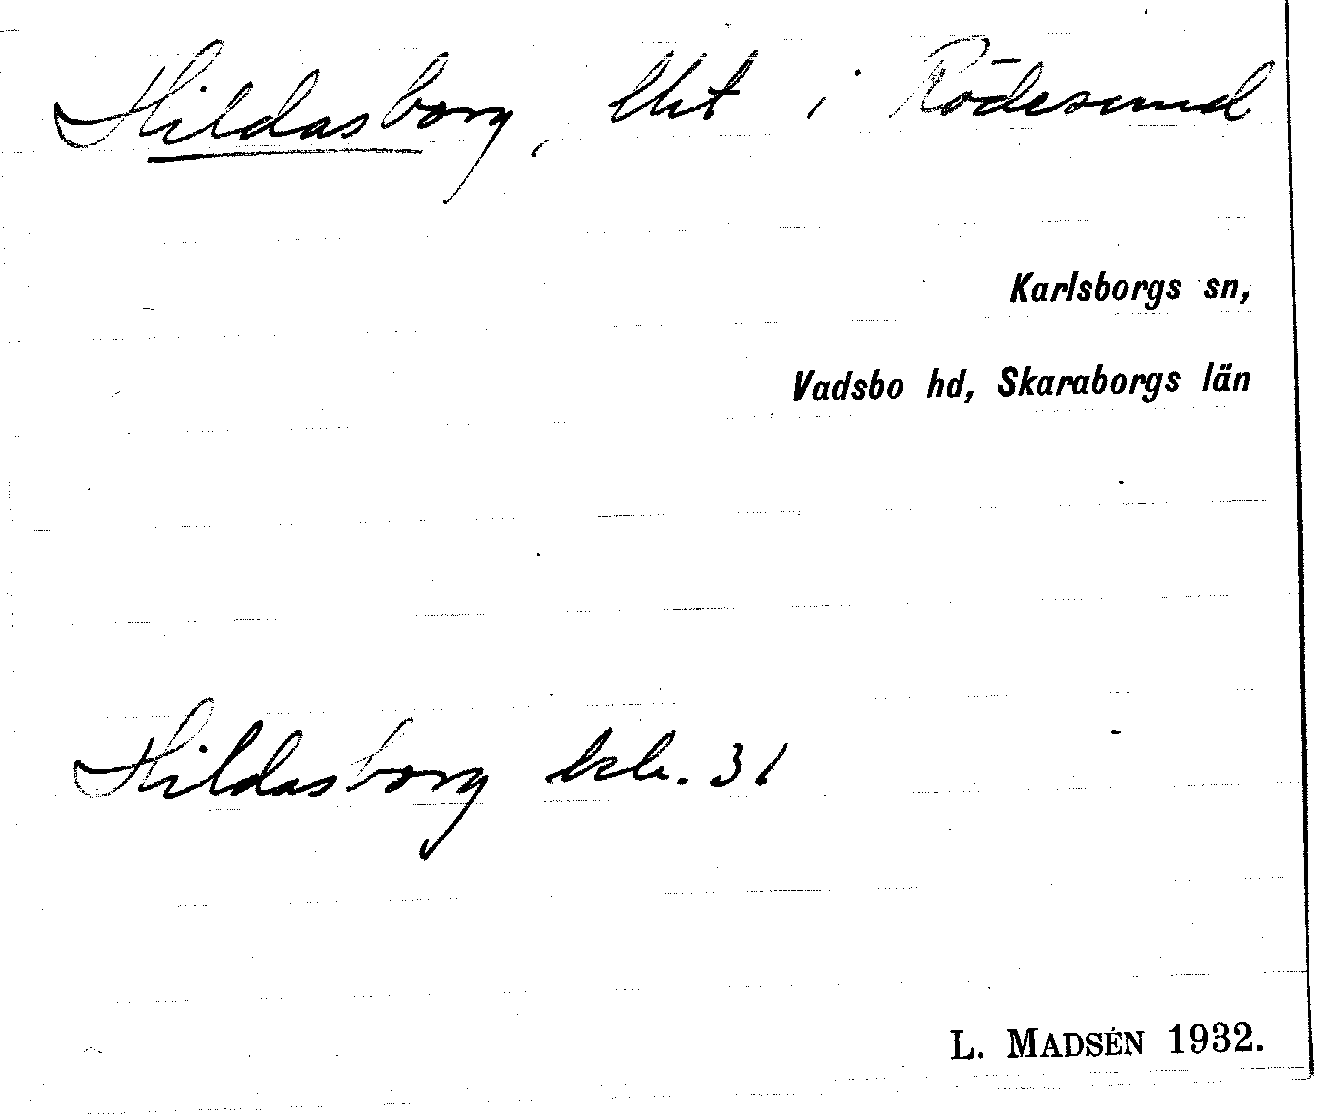 Hildasborg, lht i Rödesund
Karlsborgs sn,
Vadsbo hd, Skaraborgs län
Hildasborg kb. 31
L. MADSÉN 1932.